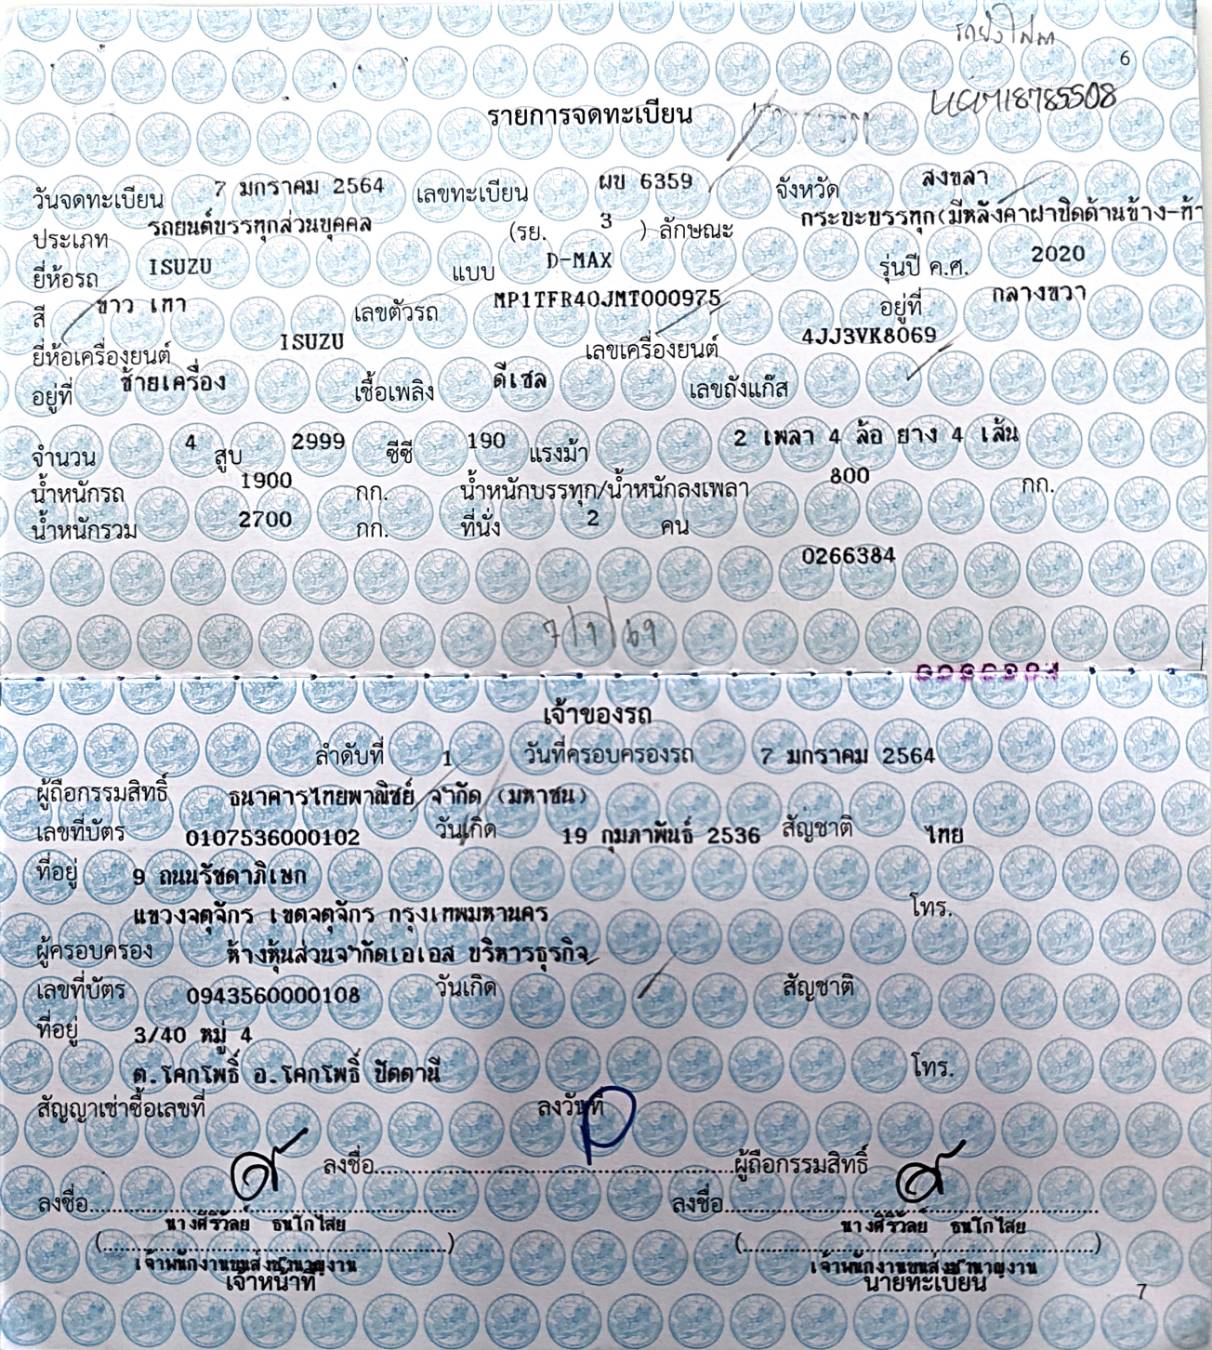 6
รายการจดทะเบียน
วันจดทะเบียน 7 มกราคม 2564 เลขทะเบียน ผข 6359 จังหวัด สงขลา
ประเภท รถยนต์บรรทุกส่วนบุคคล (รย. 3 ) ลักษณะ กระบะบรรทุก(มีหลังคาฝาปิดด้านข้าง-ท้า
ยี่ห้อรถ ISUZU แบบ D-MAX รุ่นปี ค.ศ. 2020
สี ขาว เทา เลขตัวรถ MP1TFR40JMT000975 อยู่ที่ กลางขวา
ยี่ห้อเครื่องยนต์ ISUZU เลขเครื่องยนต์ 4JJ3VK8069
อยู่ที่ ซ้ายเครื่อง เชื้อเพลิง ดีเซล เลขถังแก๊ส
จำนวน 4 สูบ 2999 ซีซี 190 แรงม้า 2 เพลา 4 ล้อ ยาง 4 เส้น
น้ำหนักรถ 1900 กก. น้ำหนักบรรทุก/น้ำหนักลงเพลา 800 กก.
น้ำหนักรวม 2700 กก. ที่นั่ง 2 คน
0266384
7/1/69
เจ้าของรถ
ลำดับที่ 1 วันที่ครอบครองรถ 7 มกราคม 2564
ผู้ถือกรรมสิทธิ์ ธนาคารไทยพาณิชย์ จำกัด (มหาชน)
เลขที่บัตร 0107536000102 วันเกิด 19 กุมภาพันธ์ 2536 สัญชาติ ไทย
ที่อยู่ 9 ถนนรัชดาภิเษก
แขวงจตุจักร เขตจตุจักร กรุงเทพมหานคร โทร.
ผู้ครอบครอง ห้างหุ้นส่วนจำกัดเอเอส บริหารธุรกิจ
เลขที่บัตร 0943560000108 วันเกิด สัญชาติ
ที่อยู่ 3/40 หมู่ 4
ต.โคกโพธิ์ อ.โคกโพธิ์ ปัตตานี โทร.
สัญญาเช่าซื้อเลขที่ ลงวันที่
ลงชื่อ ผู้ถือกรรมสิทธิ์
ลงชื่อ ลงชื่อ
นางศิริวัลย์ ธนโกไสย นางศิริวัลย์ ธนโกไสย
เจ้าพนักงานขนส่งชำนาญงาน เจ้าพนักงานขนส่งชำนาญงาน
เจ้าหน้าที่ นายทะเบียน
7